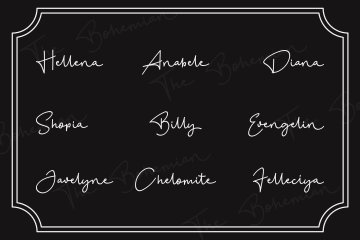 Hellena Anabele Diana
Shopia Billy Evengelin
Javelyne Chelomite Felleciya
The Bohemian
The Bohemian
The Bohemian
The Bohemian